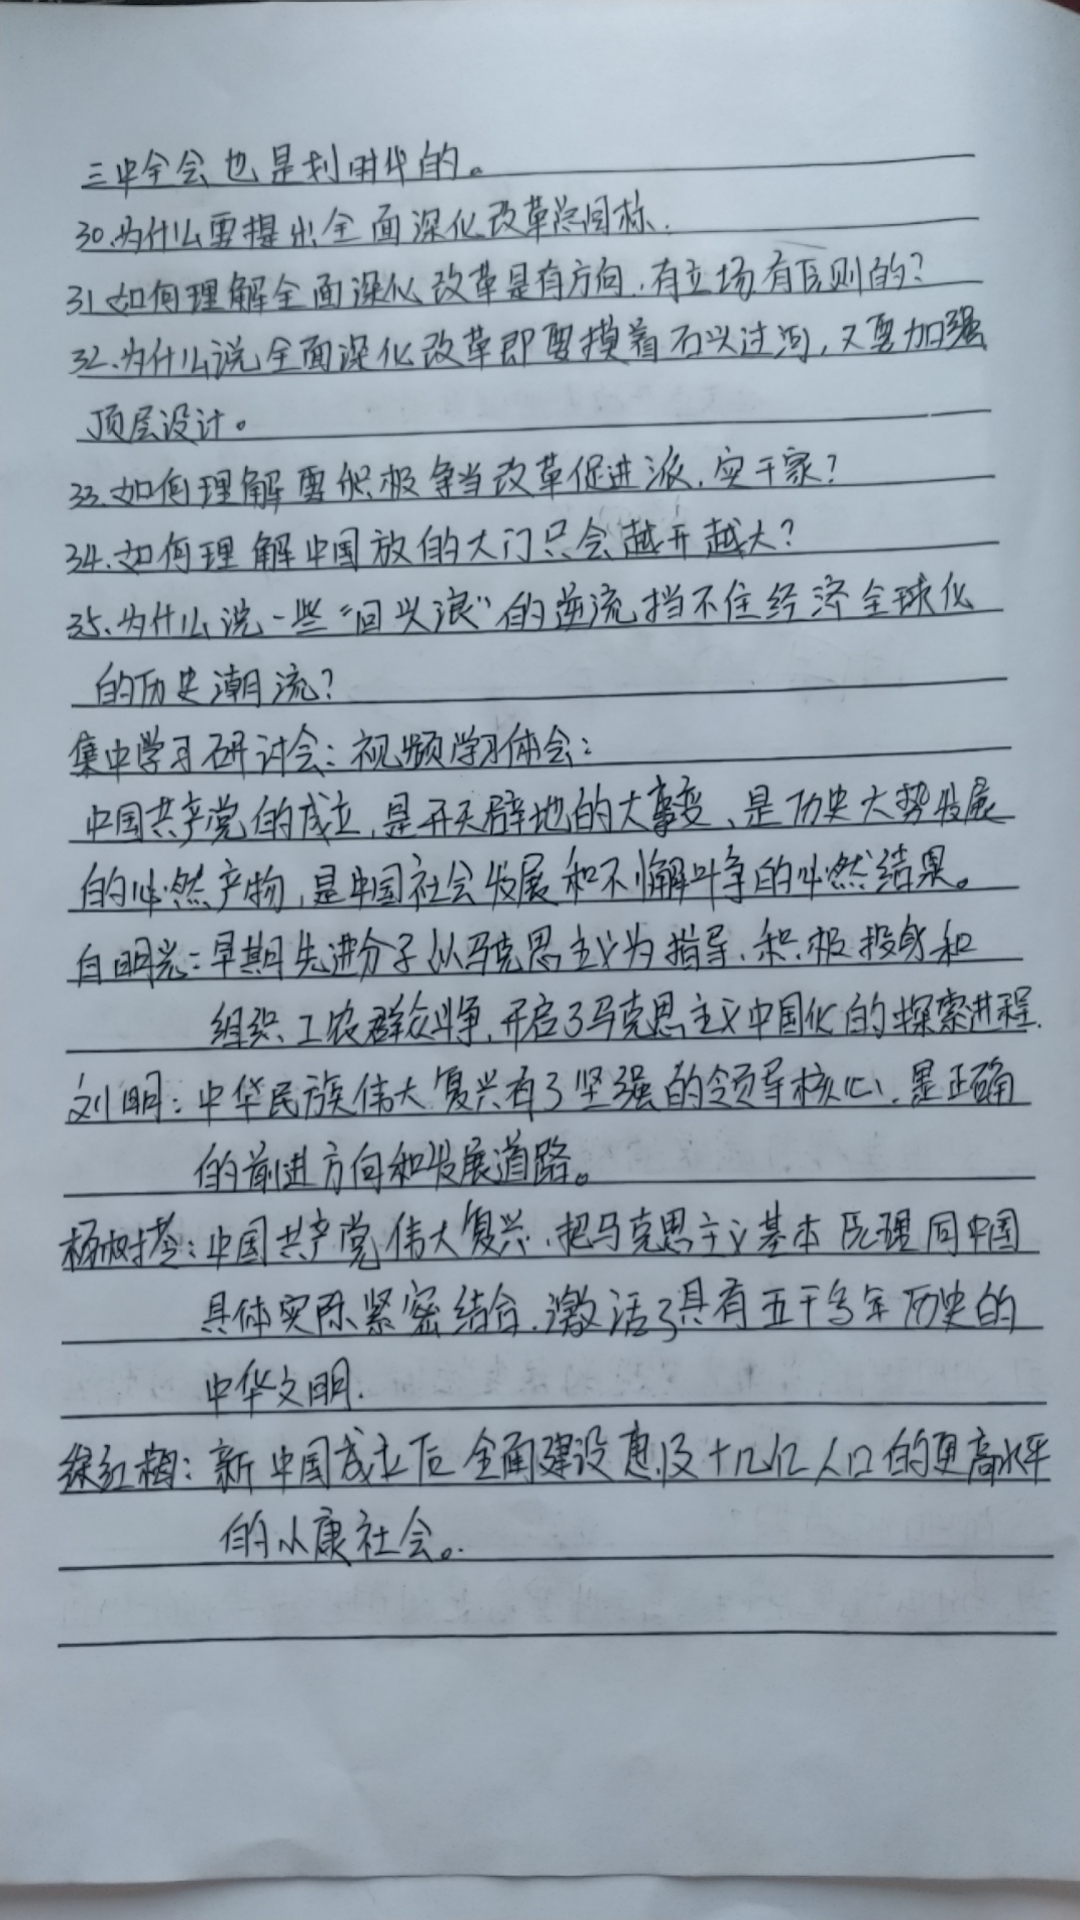 三中全会也是划时代的。
30.为什么要提出全面深化改革总目标.
31.如何理解全面深化改革是有方向、有立场、有原则的？
32.为什么说全面深化改革即要摸着石头过河，又要加强
顶层设计。
33.如何理解要积极争当改革促进派、实干家？
34.如何理解中国放的大门只会越开越大？
35.为什么说一些“回头浪”的逆流挡不住经济全球化
的历史潮流？
集中学习研讨会：视频学习体会：
中国共产党的成立，是开天辟地的大事变、是历史大势发展
的必然产物，是中国社会发展和不懈斗争的必然结果。
白明光：早期先进分子以马克思主义为指导、积极投身和
组织工农群众斗争，开启了马克思主义中国化的探索进程.
刘明：中华民族伟大复兴有了坚强的领导核心、是正确
的前进方向和发展道路。
杨树：中国共产党伟大复兴、把马克思主义基本原理同中国
具体实际紧密结合、激活了具有五千多年历史的
中华文明.
红梅：新中国成立后全面建设惠及十几亿人口的更高水平
的小康社会。